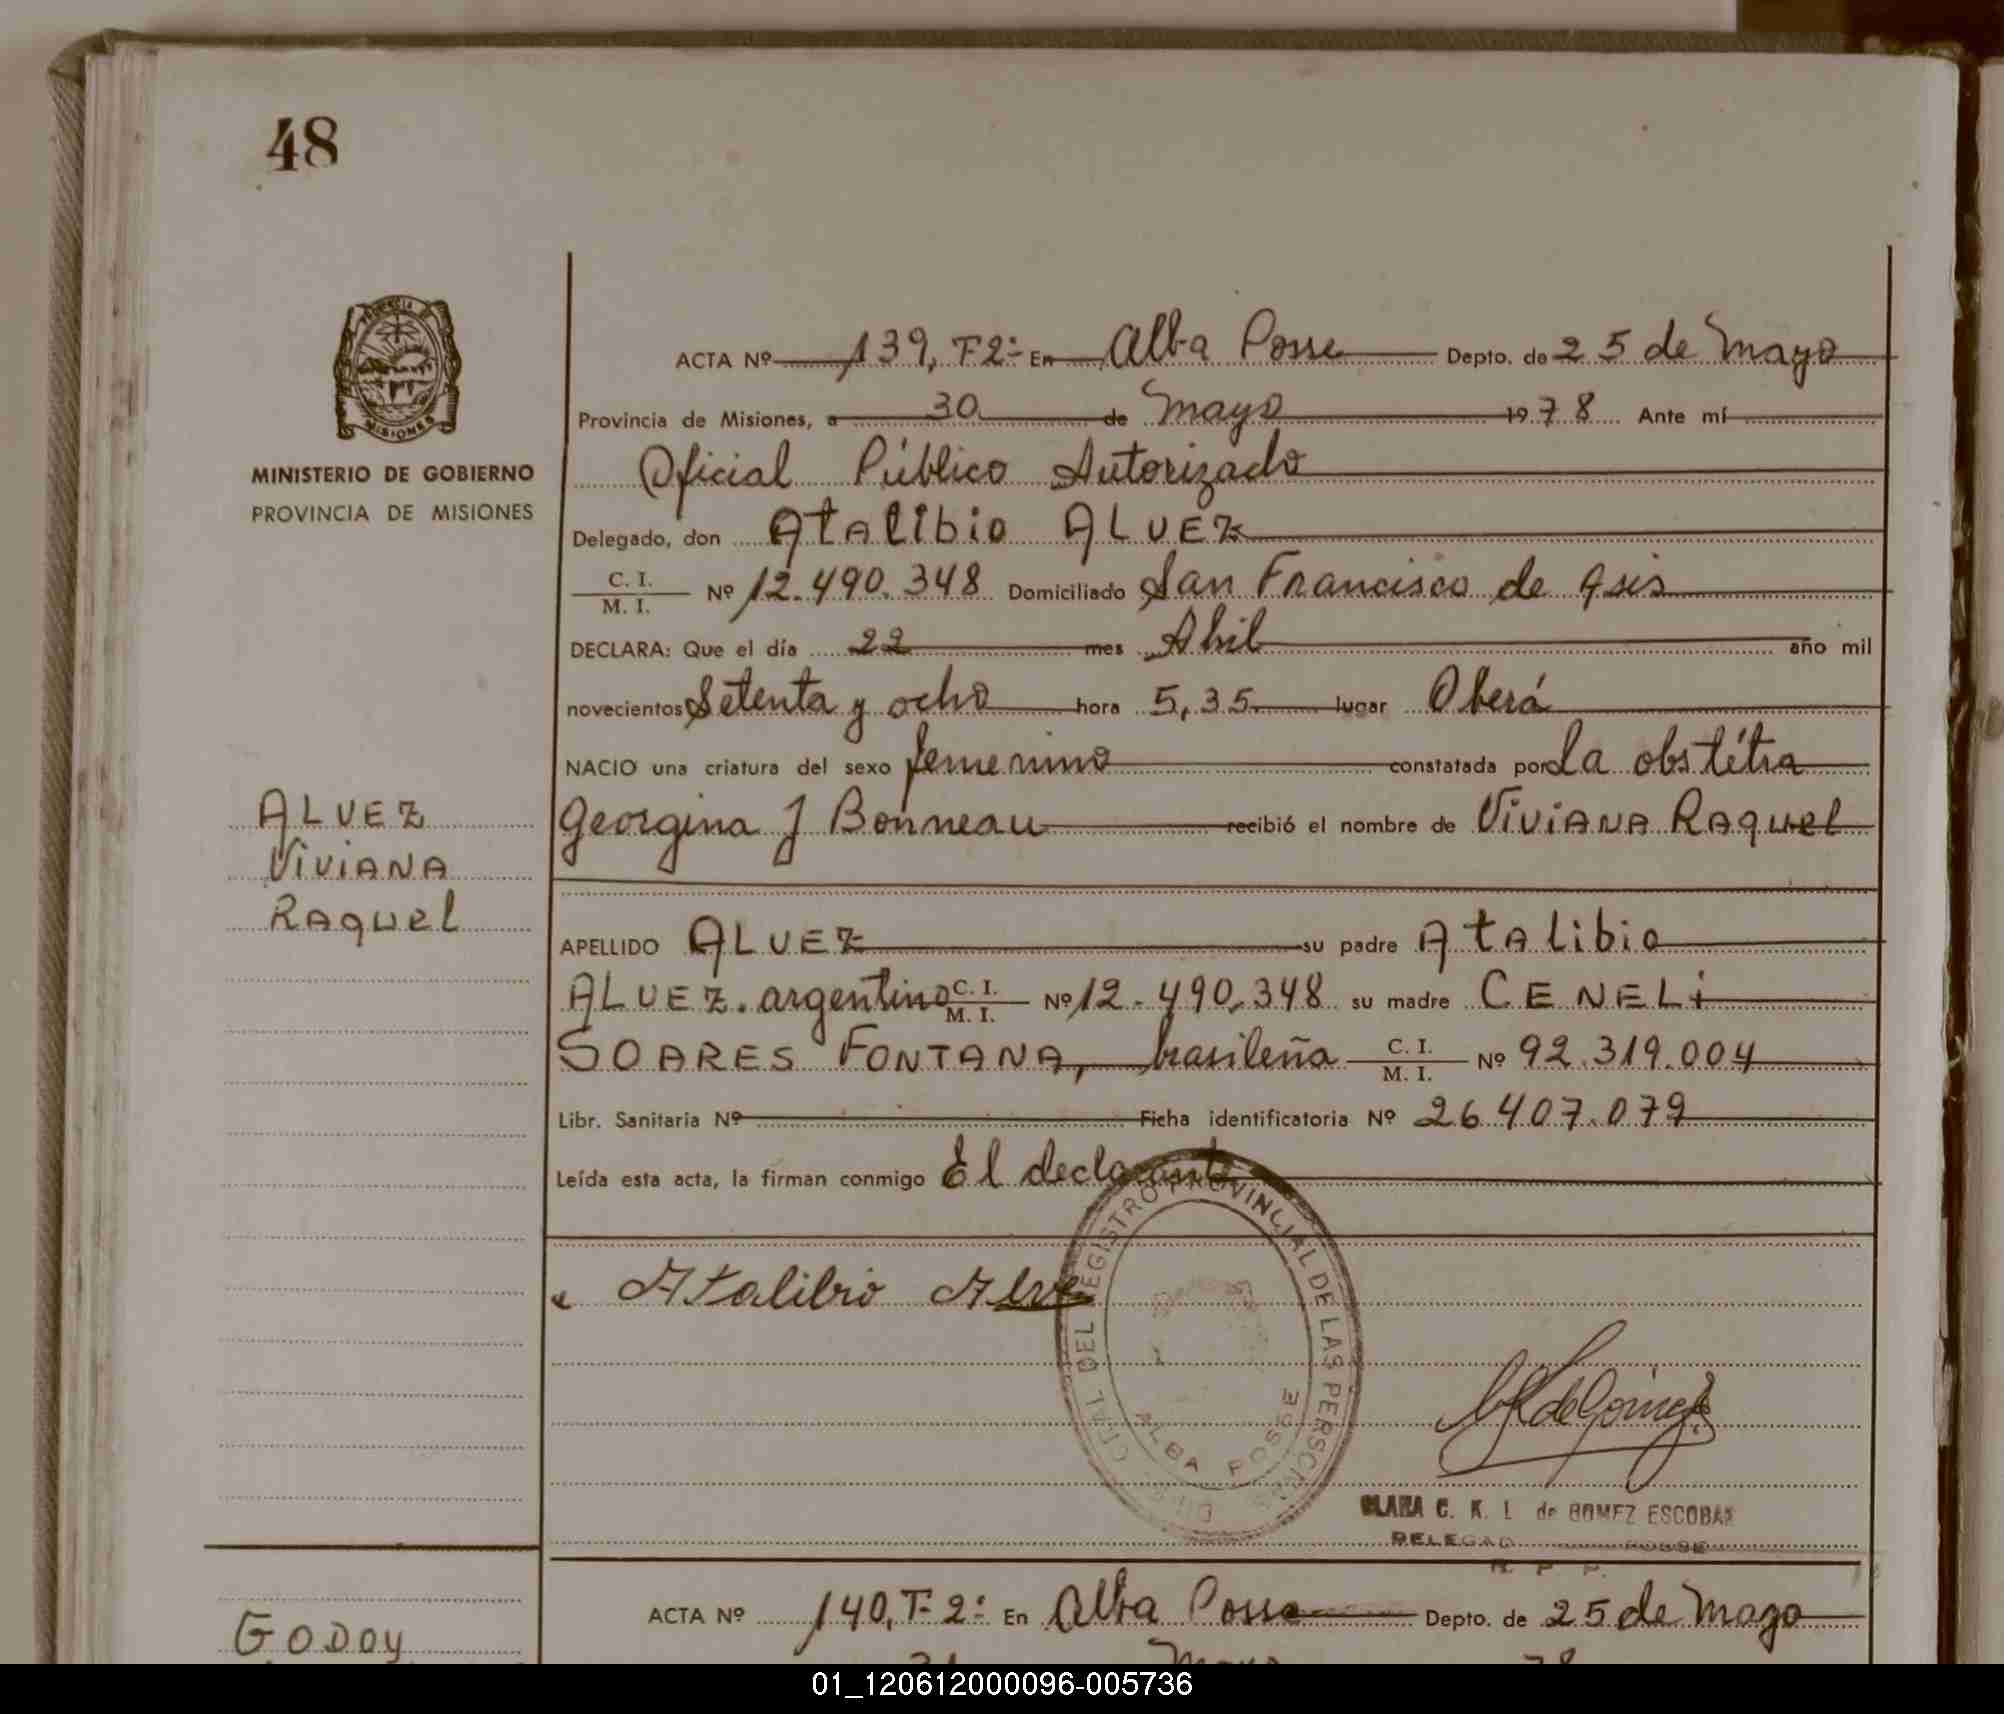 48
PROVINCIA DE
MISIONES
MINISTERIO DE GOBIERNO
PROVINCIA DE MISIONES
ALVEZ
VIVIANA
RAQUEL
ACTA Nº 139, T-2º En Alba Posse Depto. de 25 de Mayo
Provincia de Misiones, a 30 de Mayo 1978 Ante mí
Oficial Público Autorizado
Delegado, don Atalibio ALVEZ
C. I. / M. I. Nº 12.490.348 Domiciliado San Francisco de Asis
DECLARA: Que el día 22 mes Abil año mil
novecientos Setenta y ocho hora 5,35 lugar Oberá
NACIO una criatura del sexo femenino constatada por la obstétra
Georgina J Bonneau recibió el nombre de VIVIANA RAQUEL
APELLIDO ALVEZ su padre Atalibio
ALVEZ. argentino C. I. / M. I. Nº 12.490.348 su madre CENELi
SOARES FONTANA, brasileña C. I. / M. I. Nº 92.319.004
Libr. Sanitaria Nº Ficha identificatoria Nº 26.407.079
Leída esta acta, la firman conmigo El declarante
Atalibio Alve
DEL REGISTRO PROVINCIAL DE LAS PERSONAS
ALBA POSSE
de Gómez
CLARA C. K. I. de GOMEZ ESCOBAR
POSSE
R. P. P.
ACTA Nº 140, T-2º En Alba Posse Depto. de 25 de Mayo
GODOY
31 Mayo 78
01_120612000096-005736